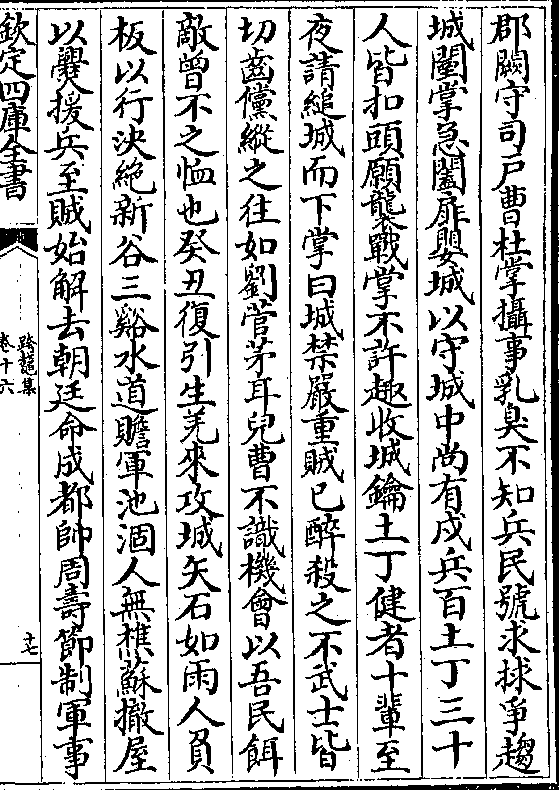 郡闕守司户曹杜掌攝事乳臭不知兵民號求捄爭趨
城闉掌急闔扉嬰城以守城中尚有戍兵百土丁三十
人皆扣頭願襲戰掌不許趣收城鑰土丁健者十輩至
夜請縋城而下掌曰城禁嚴重賊已醉殺之不武士皆
切齒儻縱之往如劉菅茅耳兒曹不識機會以吾民餌
敵曾不之恤也癸丑復引生羌來攻城矢石如雨人負
板以行決絶新谷三谿水道贍軍池涸人無樵蘇撤屋
以爨援兵至賊始解去朝廷命成都帥周壽節制軍事
欽定四庫全書
跨鼇集
卷十六
十七